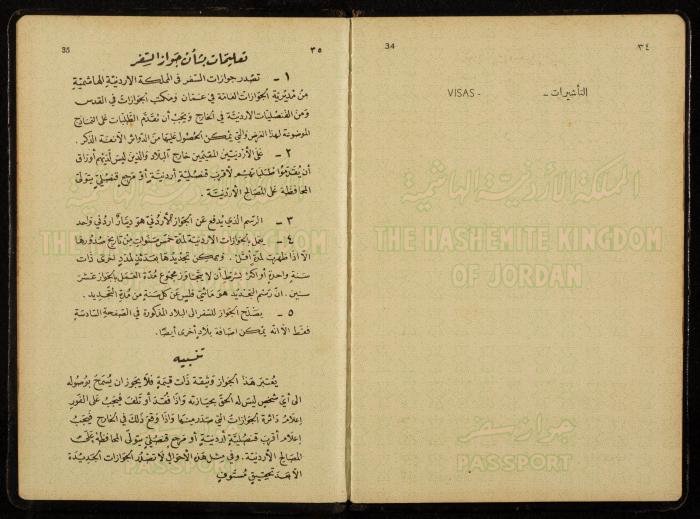 35
٣٥
تعليمات بشأن جواز السفر
١ – تصدر جوازات السفر في المملكة الاردنية الهاشمية
من مديرية الجوازات العامة في عمان ومكتب الجوازات في القدس
ومن القنصليات الاردنية في الخارج ويجب أن تقدم الطلبات على النماذج
الموضوعة لهذا الغرض والتي يمكن الحصول عليها من الدوائر الآنفة الذكر.
٢ – على الأردنيين المقيمين خارج البلاد والذين ليس لديهم أوراق
أن يقدموا طلباتهم لأقرب قنصلية أردنية أو مرجع قنصلي يتولى
المحافظة على المصالح الاردنية.
٣ – الرسم الذي يدفع عن الجواز الأردني هو دينار اردني واحد
٤ – يعمل بالجوازات الاردنية لمدة خمس سنوات من تاريخ صدورها
الا اذا أعطيت لمدة أقل. ويمكن تجديدها بعدئذ لمدد أخرى ذات
سنة واحدة أو اكثر بشرط أن لا يتجاوز مجموع مدة العمل بالجواز عشر
سنين. ان رسم التجديد هو مائتي فلس عن كل سنة من مدة التجديد.
٥ – يصلح الجواز للسفر الى البلاد المذكورة في الصفحة السادسة
فقط الا انه يمكن اضافة بلاد أخرى أيضا.
تنبيه
يعتبر هذا الجواز وثيقة ذات قيمة فلا يجوز ان يسمح بوصوله
الى أي شخص ليس له الحق بحيازته واذا فقد أو تلف فيجب على الفور
إعلام دائرة الجوازات التي صدر منها واذا وقع ذلك في الخارج فيجب
إعلام أقرب قنصلية أردنية أو مرجع قنصلي يتولى المحافظة على
المصالح الأردنية. وفي مثل هذه الأحوال لا تصدر الجوازات الجديدة
الا بعد تحقيق مستوف
THE HASHEMITE KINGDOM
34
٣٤
VISAS -
التأشيرات -
المملكة الأردنية الهاشمية
THE HASHEMITE KINGDOM
OF JORDAN
جواز سفر
PASSPORT